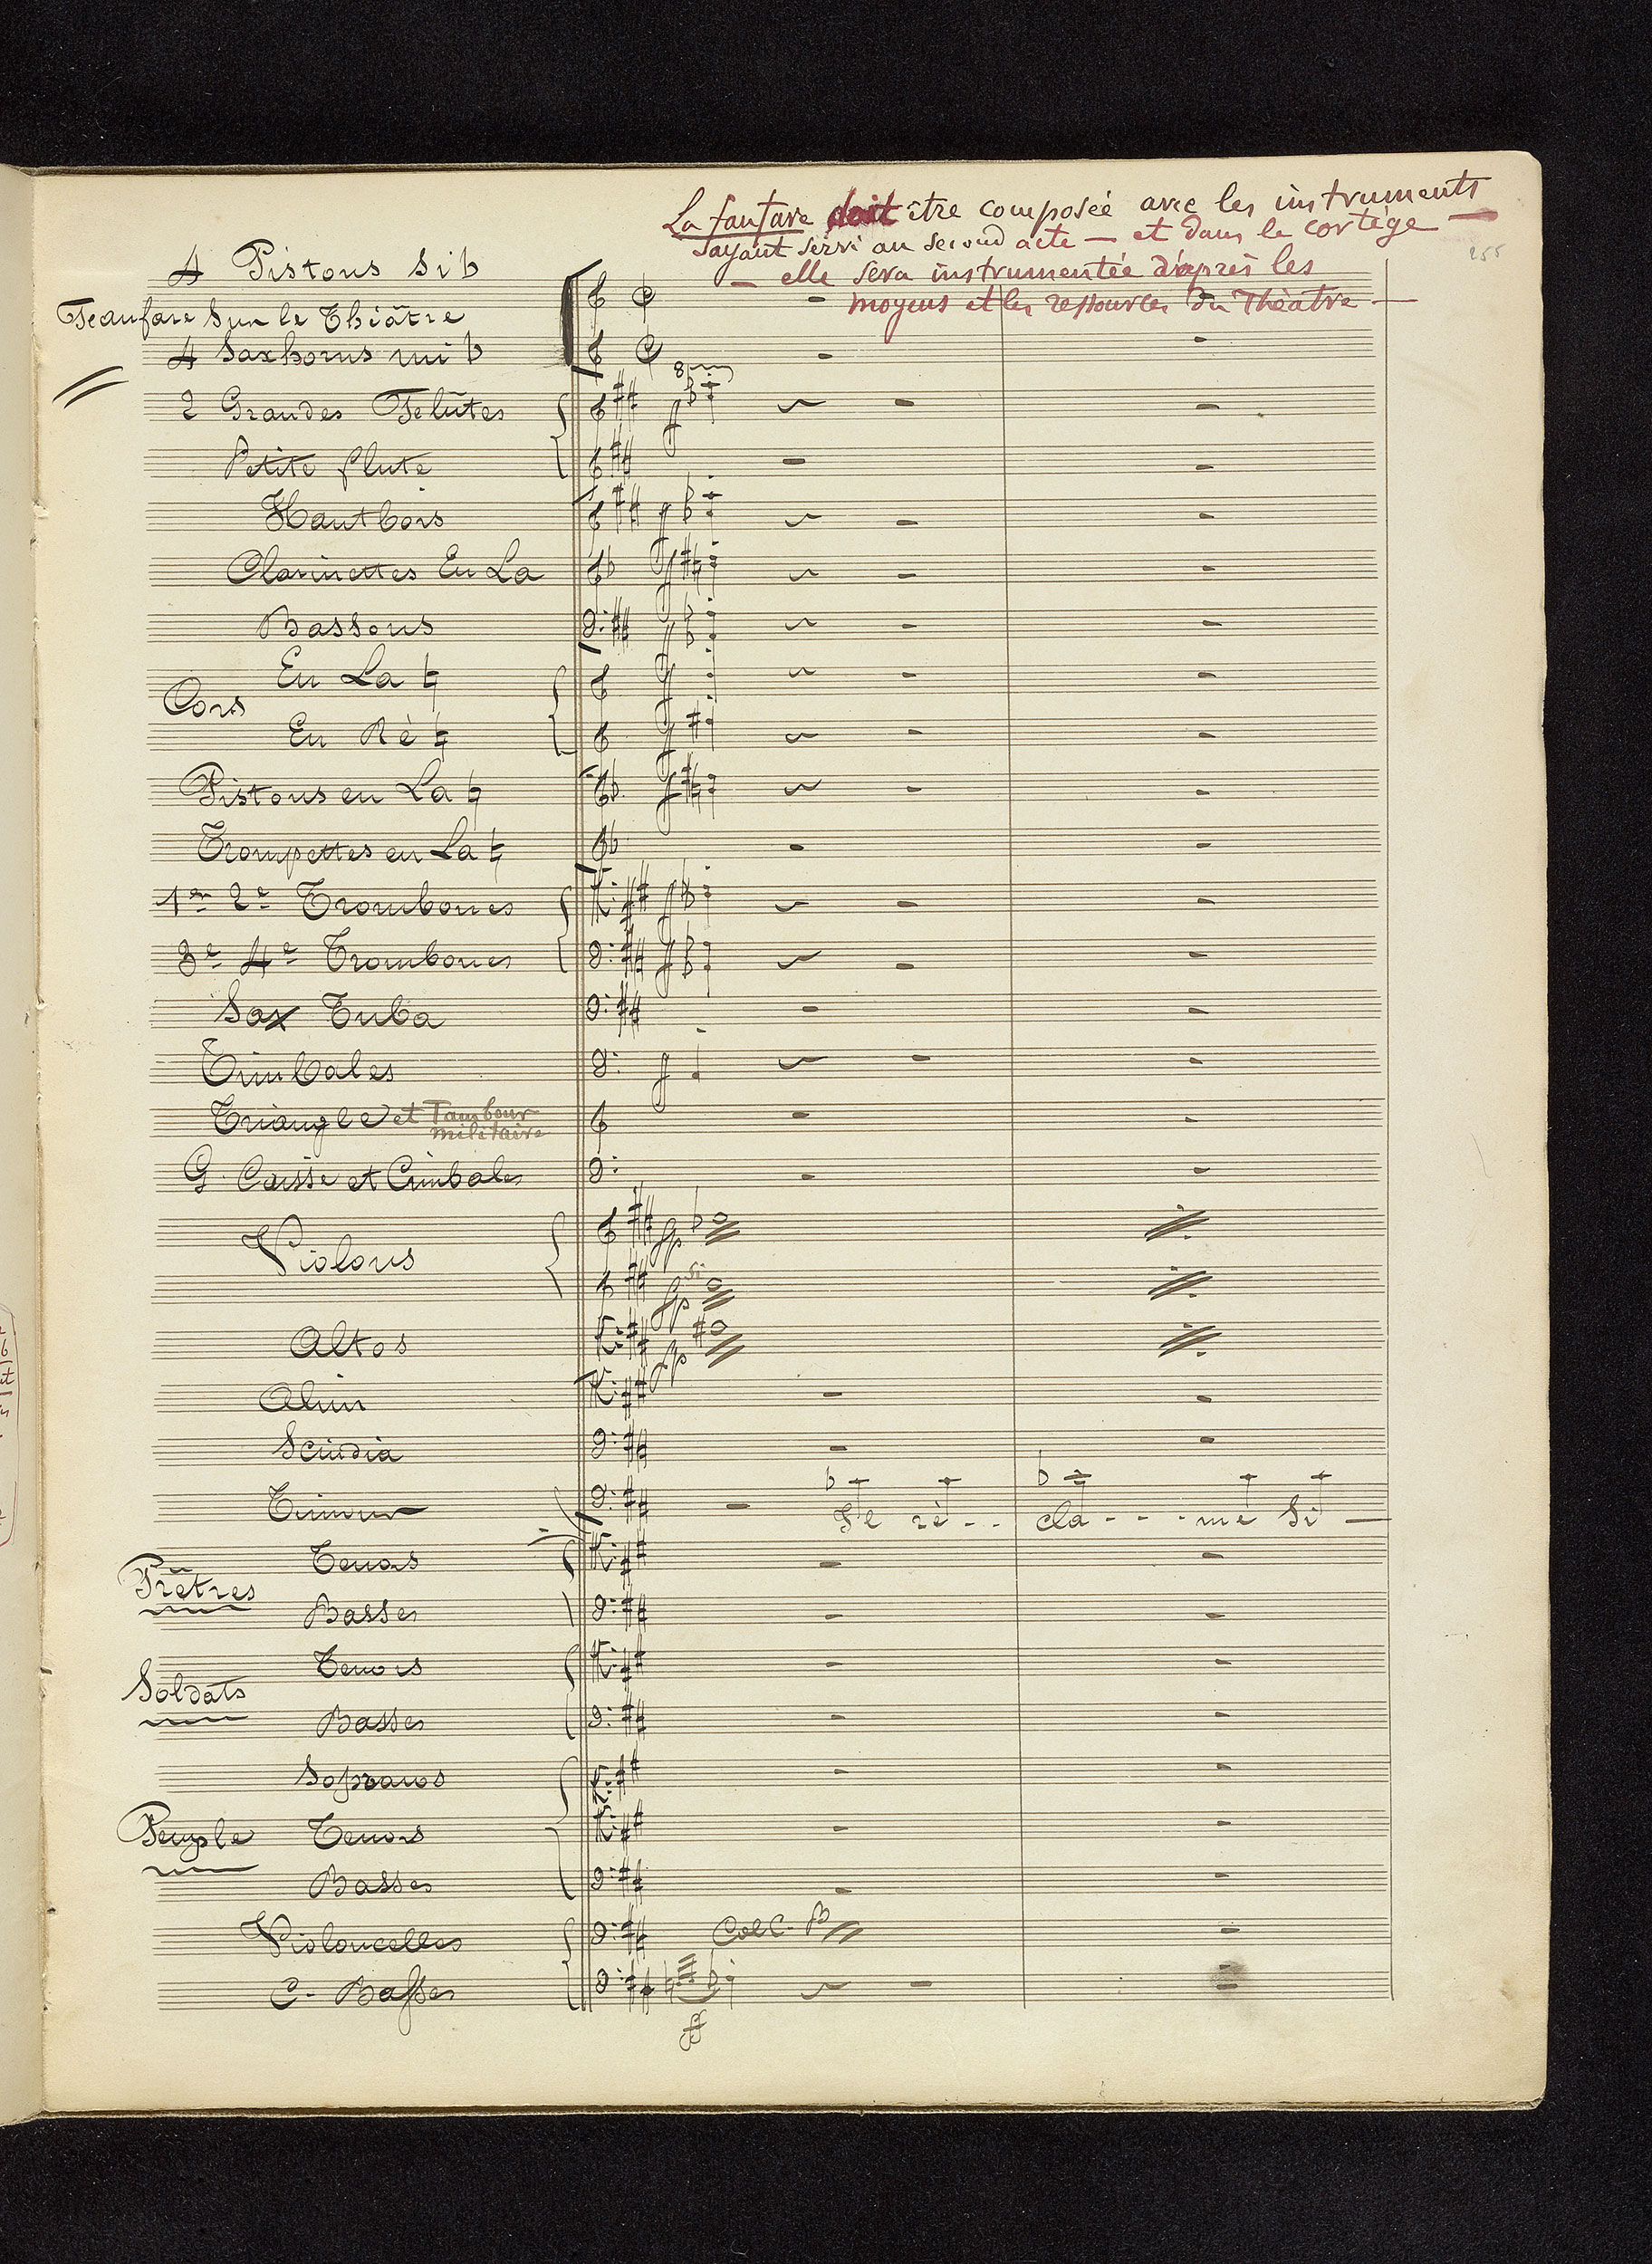 La fanfare doit être composée avec les instruments
ayant servi au second acte — et dans le cortège —
— elle sera instrumentée d'après les
moyens et les ressources du Théâtre —
255
4 Pistons Si b
Feanfare Sur le Théâtre
4 Saxhorns mi b
8
2 Grandes Felûtes
Petite flute
Hautbois
Clarinettes En La
Bassons
Cors
En La ♮
En Rè ♮
Pistons en La ♮
Trompettes en La ♮
1er 2e Trombones
3e 4e Trombones
Sax Tuba
Timbales
Triangle et Tambour
militaire
G. Caisse et Cimbales
fp
Violons
si
fp
Altos
fp
Alim
Scindia
Timour
Je ré - - cla - - - me Si —
Prêtres
Tenors
Basses
Soldats
Tenors
Basses
Sopranos
Peuple
Tenors
Basses
Violoncelles
Col C. B
C. Basses
ff